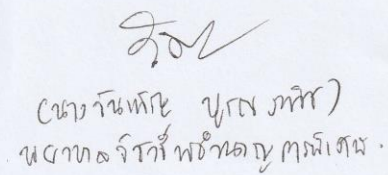 (นางวันเพ็ญ บูรณวานิช)
พยาบาลวิชาชีพชำนาญการพิเศษ.